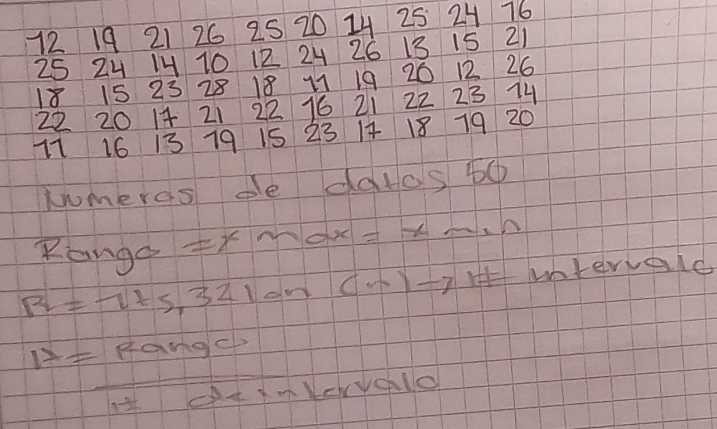 12 19 21 26 25 20 14 25 24 16
25 24 14 10 12 24 26 13 15 21
18 15 23 28 18 11 19 20 12 26
22 20 17 21 22 16 21 22 23 14
11 16 13 19 15 23 17 18 19 20
Numeros de datos 50
Rango = x max = x min
R = 1+5,32 (n) → # intervalo
A = Rango
# de intervalo